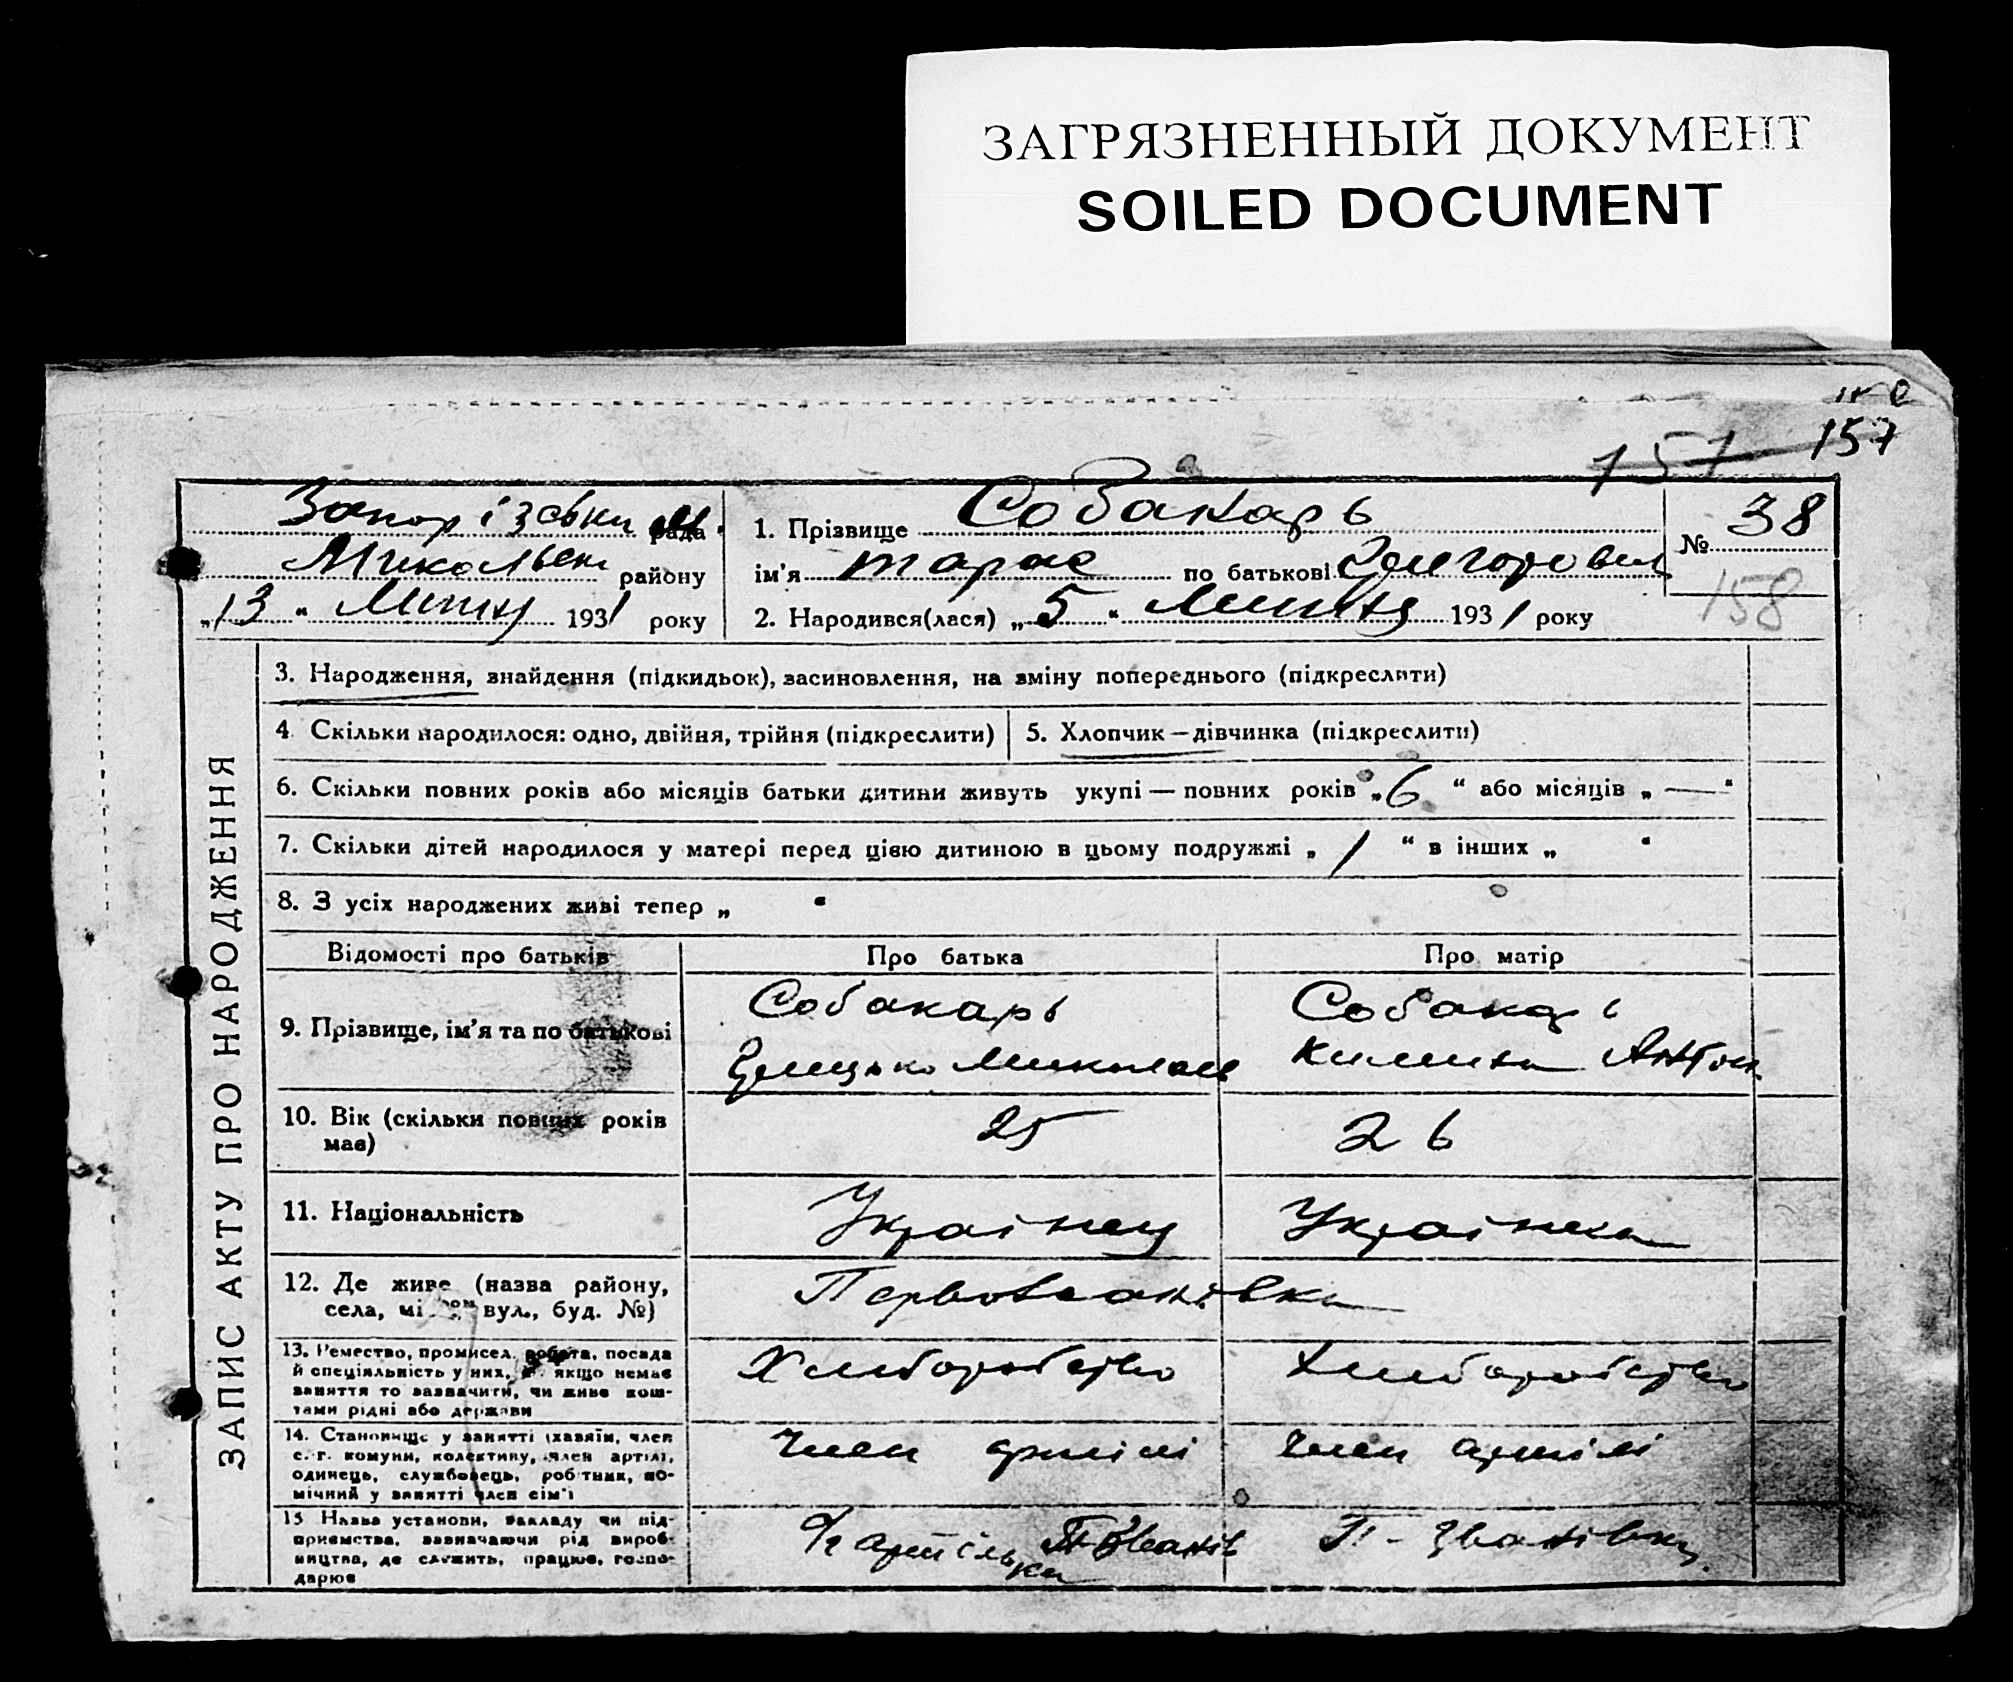 ЗАГРЯЗНЕННЫЙ ДОКУМЕНТ
SOILED DOCUMENT
157
157
Запорізька рада
району
„13“ Липня 1931 року
1. Прізвище Собакарь
ім'я Тарас по батькові Григорович
2. Народився(лася) „5“ Липня 1931 року
№ 38
158
ЗАПИС АКТУ ПРО НАРОДЖЕННЯ
3. Народження, знайдення (підкидьок), засиновлення, на зміну попереднього (підкреслити)
4. Скільки народилося: одно, двійня, трійня (підкреслити)
5. Хлопчик — дівчинка (підкреслити)
6. Скільки повних років або місяців батьки дитини живуть укупі — повних років „6“ або місяців „—“
7. Скільки дітей народилося у матері перед цією дитиною в цьому подружжі „1“ в інших „ “
8. З усіх народжених живі тепер „ “
Відомості про батьків
Про батька
Про матір
9. Прізвище, ім'я та по батькові
Собакарь
Грицько Миколаєв
Собакарь
Килина Антон.
10. Вік (скільки повних років
має)
25
26
11. Національність
Українец
Українка
12. Де живе (назва району,
села, мі вул., буд. №)
Первозванівка
13. Ремество, промисел, робота, посада
й спеціяльність у них, а якщо немає
заняття то зазначити, чи живе кош-
тами рідні або держави
Хліборобство
Хліборобство
14. Становище у занятті (хазяїн, член
с.-г. комуни, колективу, член артілі,
одинець, службовець, робітник, по-
мічний у занятті член сім'ї
Член артілі
Член артілі
15 Назва установи, закладу чи під-
приємства, зазначаючи рід вироб-
ництва, де служить, працює, госпо-
дарює
П-Званів
ка
П-Званівка